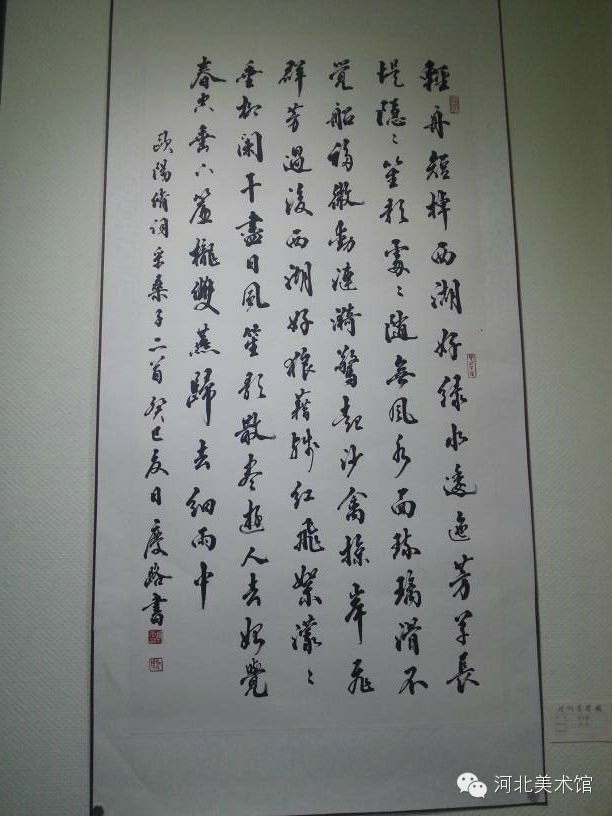 輕舟短棹西湖好綠水逶迤芳草長
堤隱〻笙歌處〻隨無風水面琉璃滑不
覺船移微動漣漪驚起沙禽掠岸飛
群芳過後西湖好狼藉殘紅飛絮濛〻
垂柳闌干盡日風笙歌散尽遊人去始覺
春空垂下簾櫳雙燕歸去細雨中
歐陽脩詞采桑子二首癸巳夏日慶路書
河北美术馆